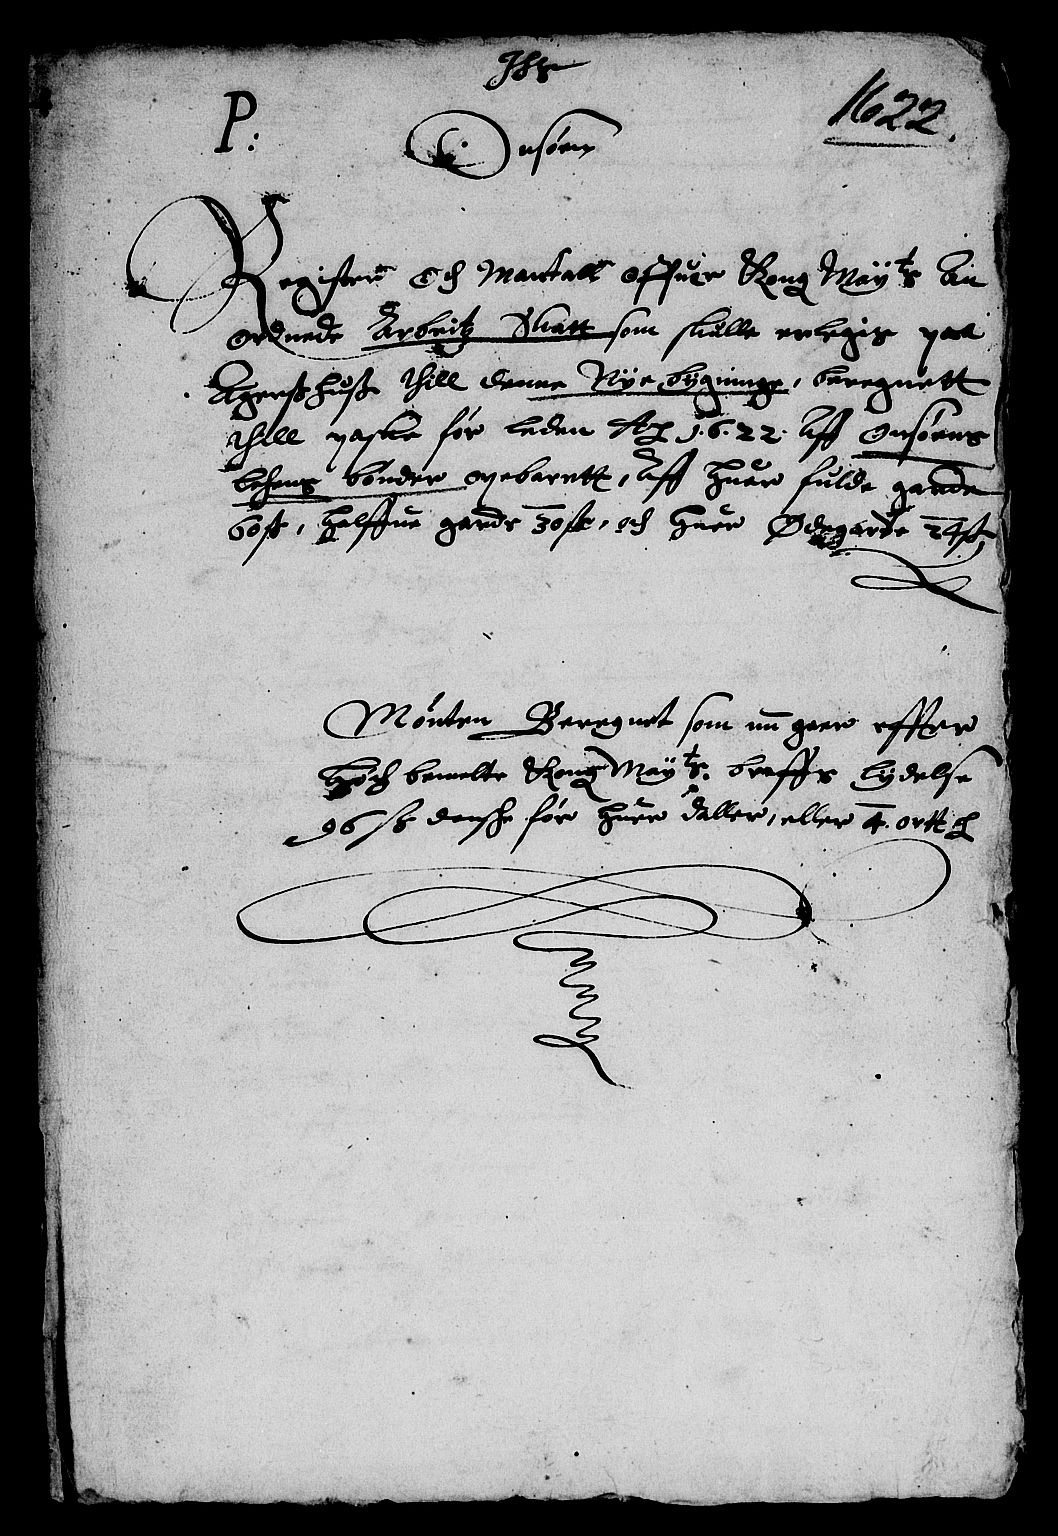 P:
1622.
Onsøen
Register Och Mantall offuer Kong: May:ts An
ordnede Arbeitz Skatt som skulle erlegis paa
Agershusß thill denne Nye bygninge, beregnett
thill paske før leden Ao 1.6.22. Aff Onsøens
Lehens bønder opebarett, Aff huer fulde gaarde
60 sk, halffue gards 30 sk, och huer Ødegarde 24 sk,
Mønten Beregnet som nu gaar effter
høch bemelte Kong May:ts. breffs lydelse
96 sk danske før huer daller, eller 4. ortt